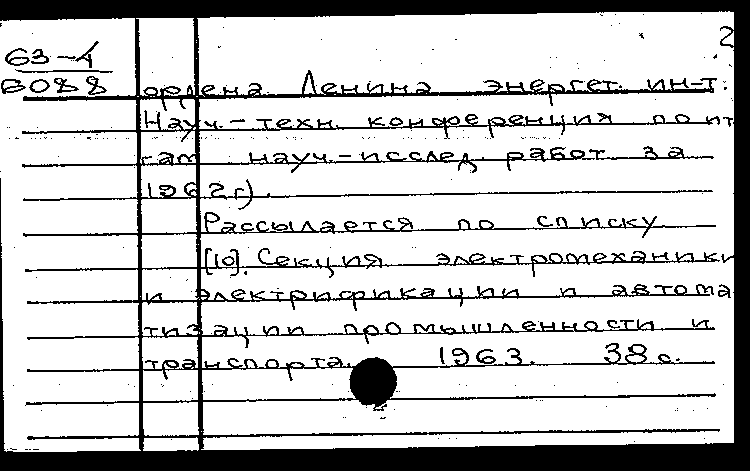 2
63-4
6088
ордена Ленина энергет. ин-т.
Науч.-техн. конференция по ит
гам науч.-исслед. работ за
1962г).
Рассылается по списку
[10]. Секция электромеханики
и электрификации и автома
тизации промышленности и
транспорта. 1963. 38 с.